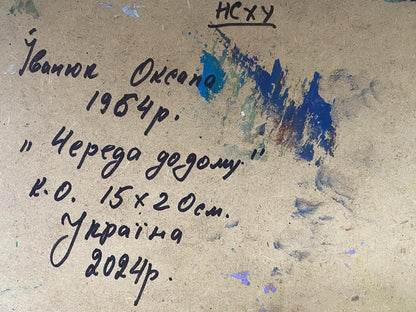 НСХУ
Іванюк Оксана
1964р.
„Череда додому"
к.о. 15х20см.
Україна
2024р.